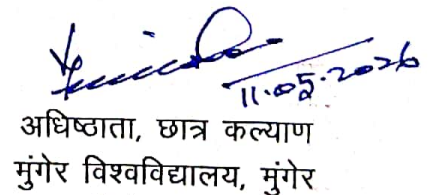 11.05.2026
अधिष्ठाता, छात्र कल्याण
मुंगेर विश्वविद्यालय, मुंगेर